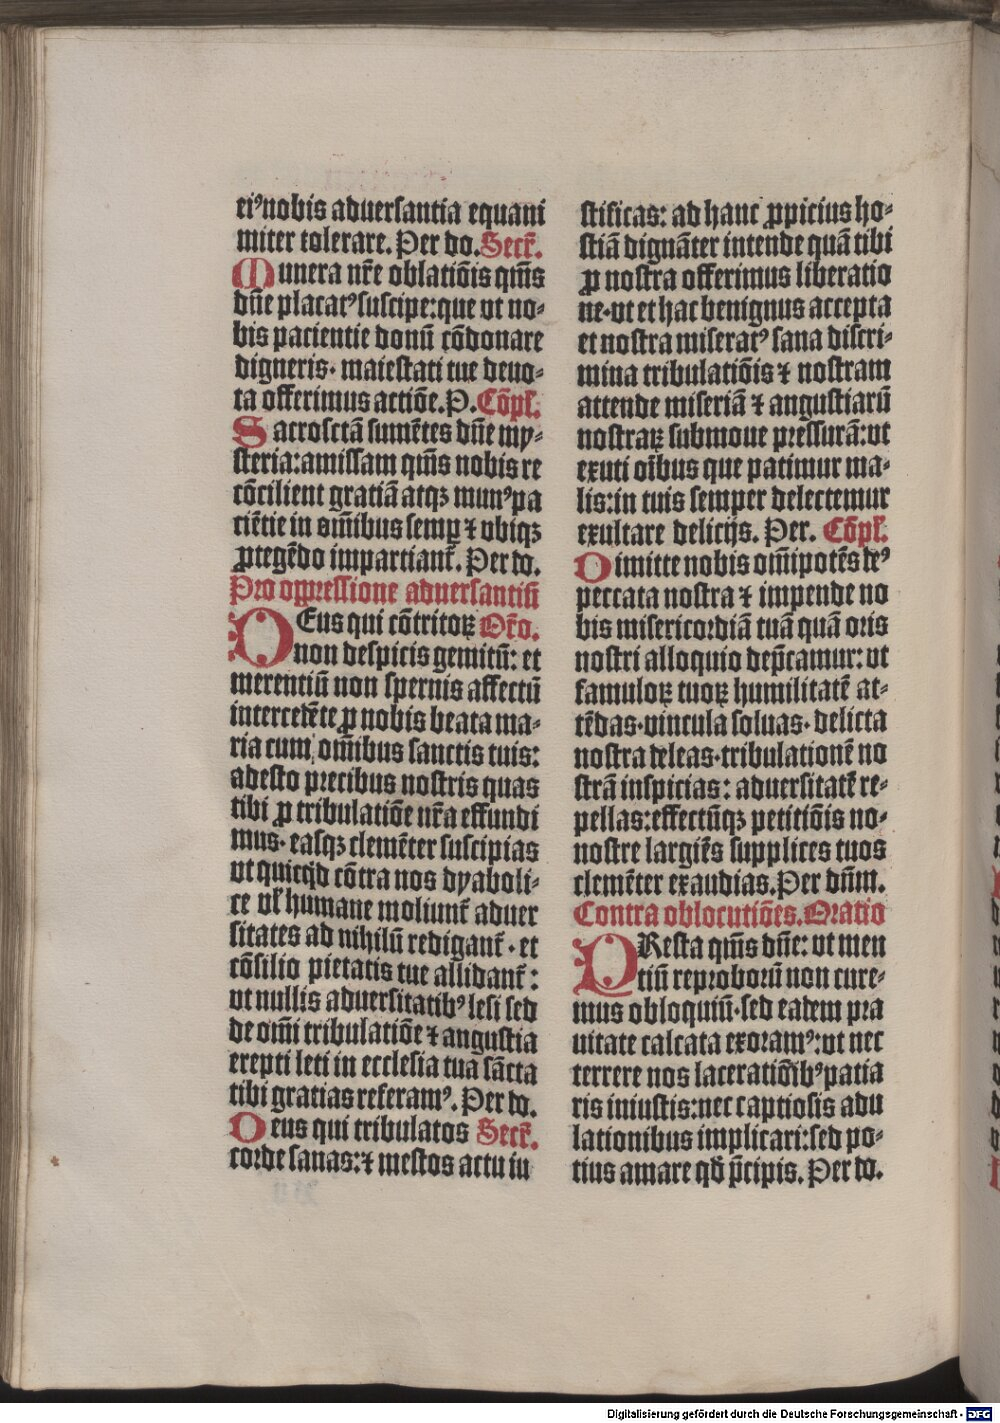 eiꝰ nobis aduersantia equani
miter tolerare. Per do. Secr̄.
Munera nr̄e oblatiōis qm̄s
dn̄e placatꝰ suscipe: que vt no⸗
bis pacientie donū cōdonare
digneris· maiestati tue deuo⸗
ta offerimus actiōe. P. Cōpl̄.
Sacrosctā sumētes dn̄e my⸗
steria: amissam qm̄s nobis re
cōcilient gratiā atqꝫ munꝰ pa
ciētie in om̄ibus semꝑ ⁊ vbiqꝫ
ꝓtegēdo impartiant̄. Per do.
Pro oppressione aduersantiū
DEus qui cōtritoꝝ Or̄o.
non despicis gemitū: et
merentiū non spernis affectū
intercedēte ꝓ nobis beata ma⸗
ria cum om̄ibus sanctis tuis:
adesto precibus nostris quas
tibi ꝓ tribulatiōe nr̄a effundi
mus· easqꝫ clemēter suscipias
vt quicqͥd cōtra nos dyaboli⸗
ce vl̄ humane moliunt̄ aduer
sitates ad nihilū redigant̄· et
cōsilio pietatis tue allidant̄:
vt nullis aduersitatibꝰ lesi sed
de om̄i tribulatiōe ⁊ angustia
erepti leti in ecclesia tua sācta
tibi gratias referamꝰ. Per do.
Deus qui tribulatos Secr̄.
corde sanas: ⁊ mestos actu iu
stificas: ad hanc ꝓpicius ho⸗
stiā dignāter intende quā tibi
ꝓ nostra offerimus liberatio
ne· vt et hac benignus accepta
et nostra miseratꝰ sana discri⸗
mina tribulatiōis ⁊ nostram
attende miseriā ⁊ angustiarū
nostraꝝ submoue pressurā: vt
exuti oībus que patimur ma⸗
lis: in tuis semper delectemur
exultare delicijs. Per. Cōpl̄.
Dimitte nobis om̄ipotēs deꝰ
peccata nostra ⁊ impende no
bis misericordiā tuā quā oris
nostri alloquio dep̄camur: vt
famuloꝝ tuoꝝ humilitatē at⸗
tēdas· vincula soluas· delicta
nostra deleas· tribulationē no
strā inspicias: aduersitatē re⸗
pellas: effectūqꝫ petitiōis no⸗
nostre largiēs supplices tuos
clemēter exaudias. Per dn̄m.
Contra oblocutiōes. Oratio
PResta qm̄s dn̄e: vt men
tiū reproborū non cure⸗
mus obloquiū· sed eadem pra
uitate calcata exoramꝰ: vt nec
terrere nos laceratiōibꝰ patia
ris iniustis: nec captiosis adu
lationibus implicari: sed po⸗
tius amare qd̄ p̄cipis. Per do.
Digitalisierung gefördert durch die Deutsche Forschungsgemeinschaft - DFG